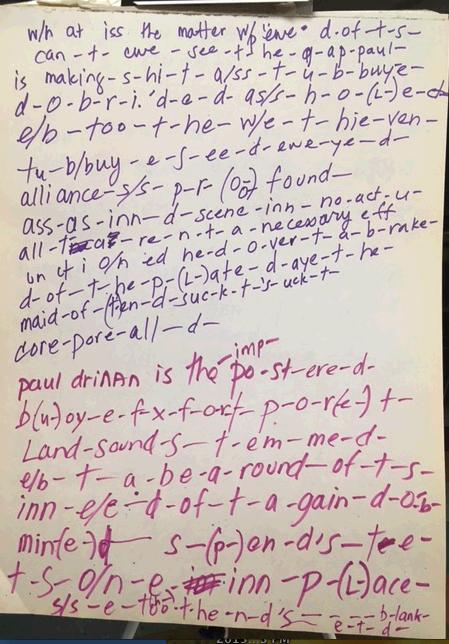 w/n at iss the matter w/p ewe d.of-t-s-
can-t-ewe-see-t-he-g-ap-paul-
is making-s-hi-t-a/ss-t-u-b-buy-e-
d-o-b-r-i.'d-e-d-as/s-h-o-(L)-e-d
e/b-too-t-he-w/e-t-hie-ven-
tu-b/buy-e-s-ee-d-ewe-ye-d-
alliance-s/s-p-r-(oo) found-
ass-as-inn-d-scene-inn-no-act-u-
all-t-re-n-t-a necessary eff
un t i o/n ed he-d-o-ver-t-a-b-rake-
d-of-t-he-p-(L-)ate-d-aye-t-he-
maid-of-(t)en-d-suc-k-t-'s-uck-t-
core-pore-all-d-
paul drinan is the imp-po-st-ere-d-
b(u-)oy-e-f-x-f-ort-p-o-r(e-)t-
Land-sound-s-t-em-me-d-
e/b-t-a-be-a-round-of-t-s-
inn-e/e-d-of-t-a-gain-d-o-b-
min(e-) s-(p-)en-d's-te-e-
t-s-o/n-e-inn-p-(L)ace-
s/s-e-too-t-he-n-d's-e-t-b-lank-d-